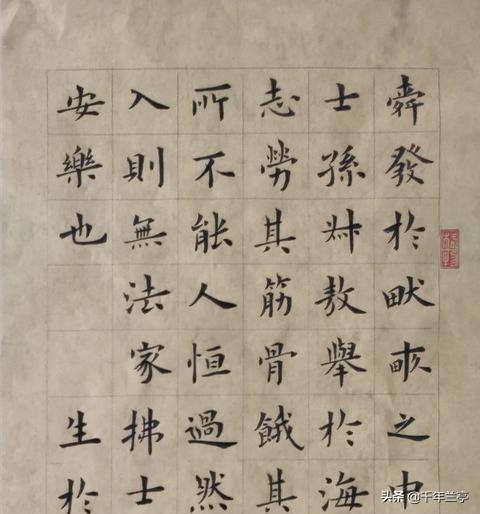 舜發於畎畝之中
士孫叔敖舉於海
志勞其筋骨餓其
所不能人恒過然
入則無法家拂士
安樂也
生於
头条 @千年兰亭